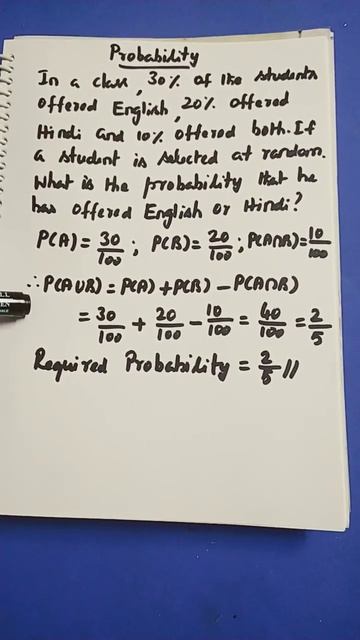 Probability
In a class, 30% of the students
offered English, 20% offered
Hindi and 10% offered both. If
a student is selected at random.
What is the probability that he
has offered English or Hindi?
P(A) = 30/100 ; P(B) = 20/100 ; P(A∩B) = 10/100
∴ P(A∪B) = P(A) + P(B) - P(A∩B)
= 30/100 + 20/100 - 10/100 = 40/100 = 2/5
Required Probability = 2/5 //